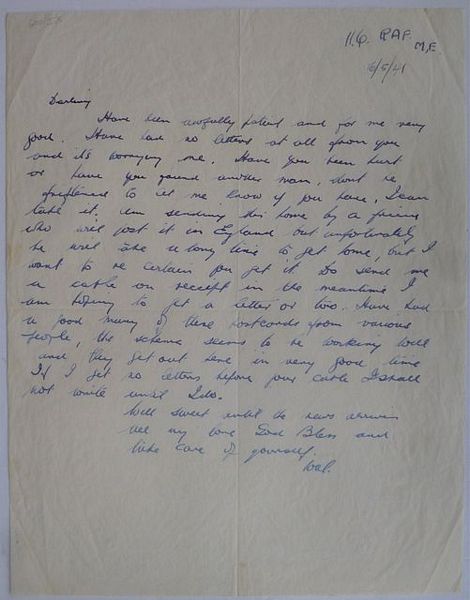 H.Q. RAF. M.E.
16/5/41
Darling
Have been awfully patient and for me very
good. Have had no letters at all from you
and it's worrying me. Have you been hurt
or have you found another man, don't be
frightened to let me know if you have, I can
take it. Am sending this home by a friend
who will post it in England but unfortunately
he will take a long time to get home, but I
want to be certain you get it. Do send me
a cable on receipt in the meantime I
am hoping to get a letter or two. Have had
a good many of these postcards from various
people, the scheme seems to be working well
and they get out here in very good time
If I get no letters before your cable I shall
not write until I do.
Well sweet until the news arrives
all my love God Bless and
take care of yourself.
Wal.